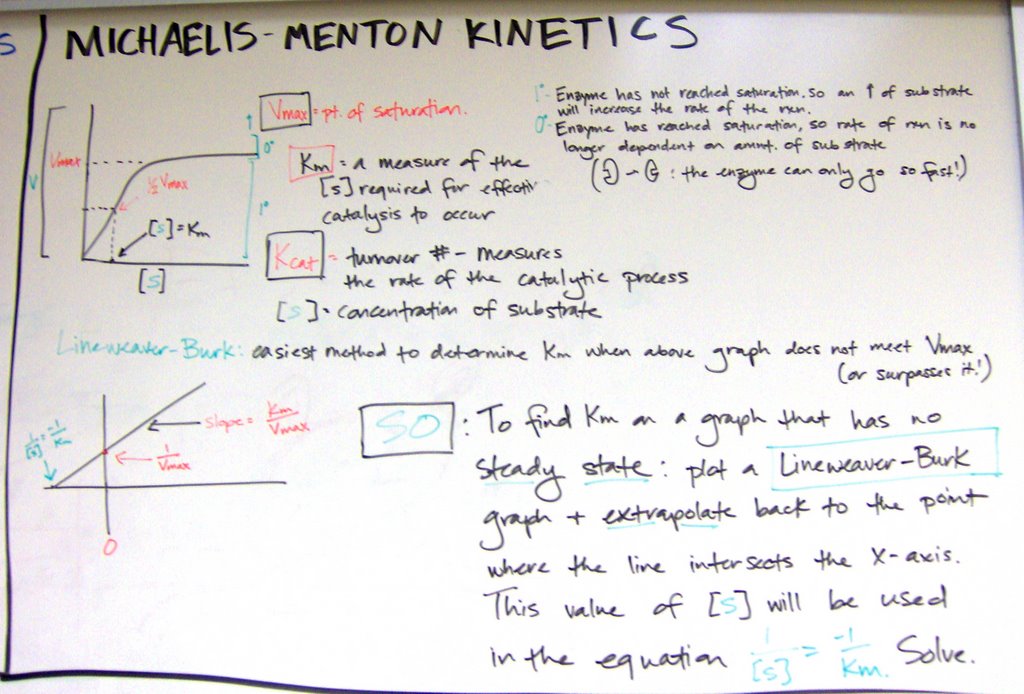 S
MICHAELIS-MENTON KINETICS
Vmax
V
½ Vmax
[S] = Km
[S]
0°
1°
Vmax = pt. of saturation.
Km = a measure of the
[S] required for effectiv
catalysis to occur
Kcat = turnover # - measures
the rate of the catalytic process
[S] = concentration of substrate
1°- Enzyme has not reached saturation. so an ↑ of substrate
will increase the rate of the rxn.
0°- Enzyme has reached saturation, so rate of rxn is no
longer dependent on amnt. of substrate
: the enzyme can only go so fast!)
Lineweaver-Burk: easiest method to determine Km when above graph does not meet Vmax
(or surpasses it!)
1/[S] = -1/Km
slope = Km/Vmax
1/Vmax
0
SO : To find Km on a graph that has no
steady state: plot a Lineweaver-Burk
graph + extrapolate back to the point
where the line intersects the X-axis.
This value of [S] will be used
in the equation 1/[S] = -1/Km. Solve.